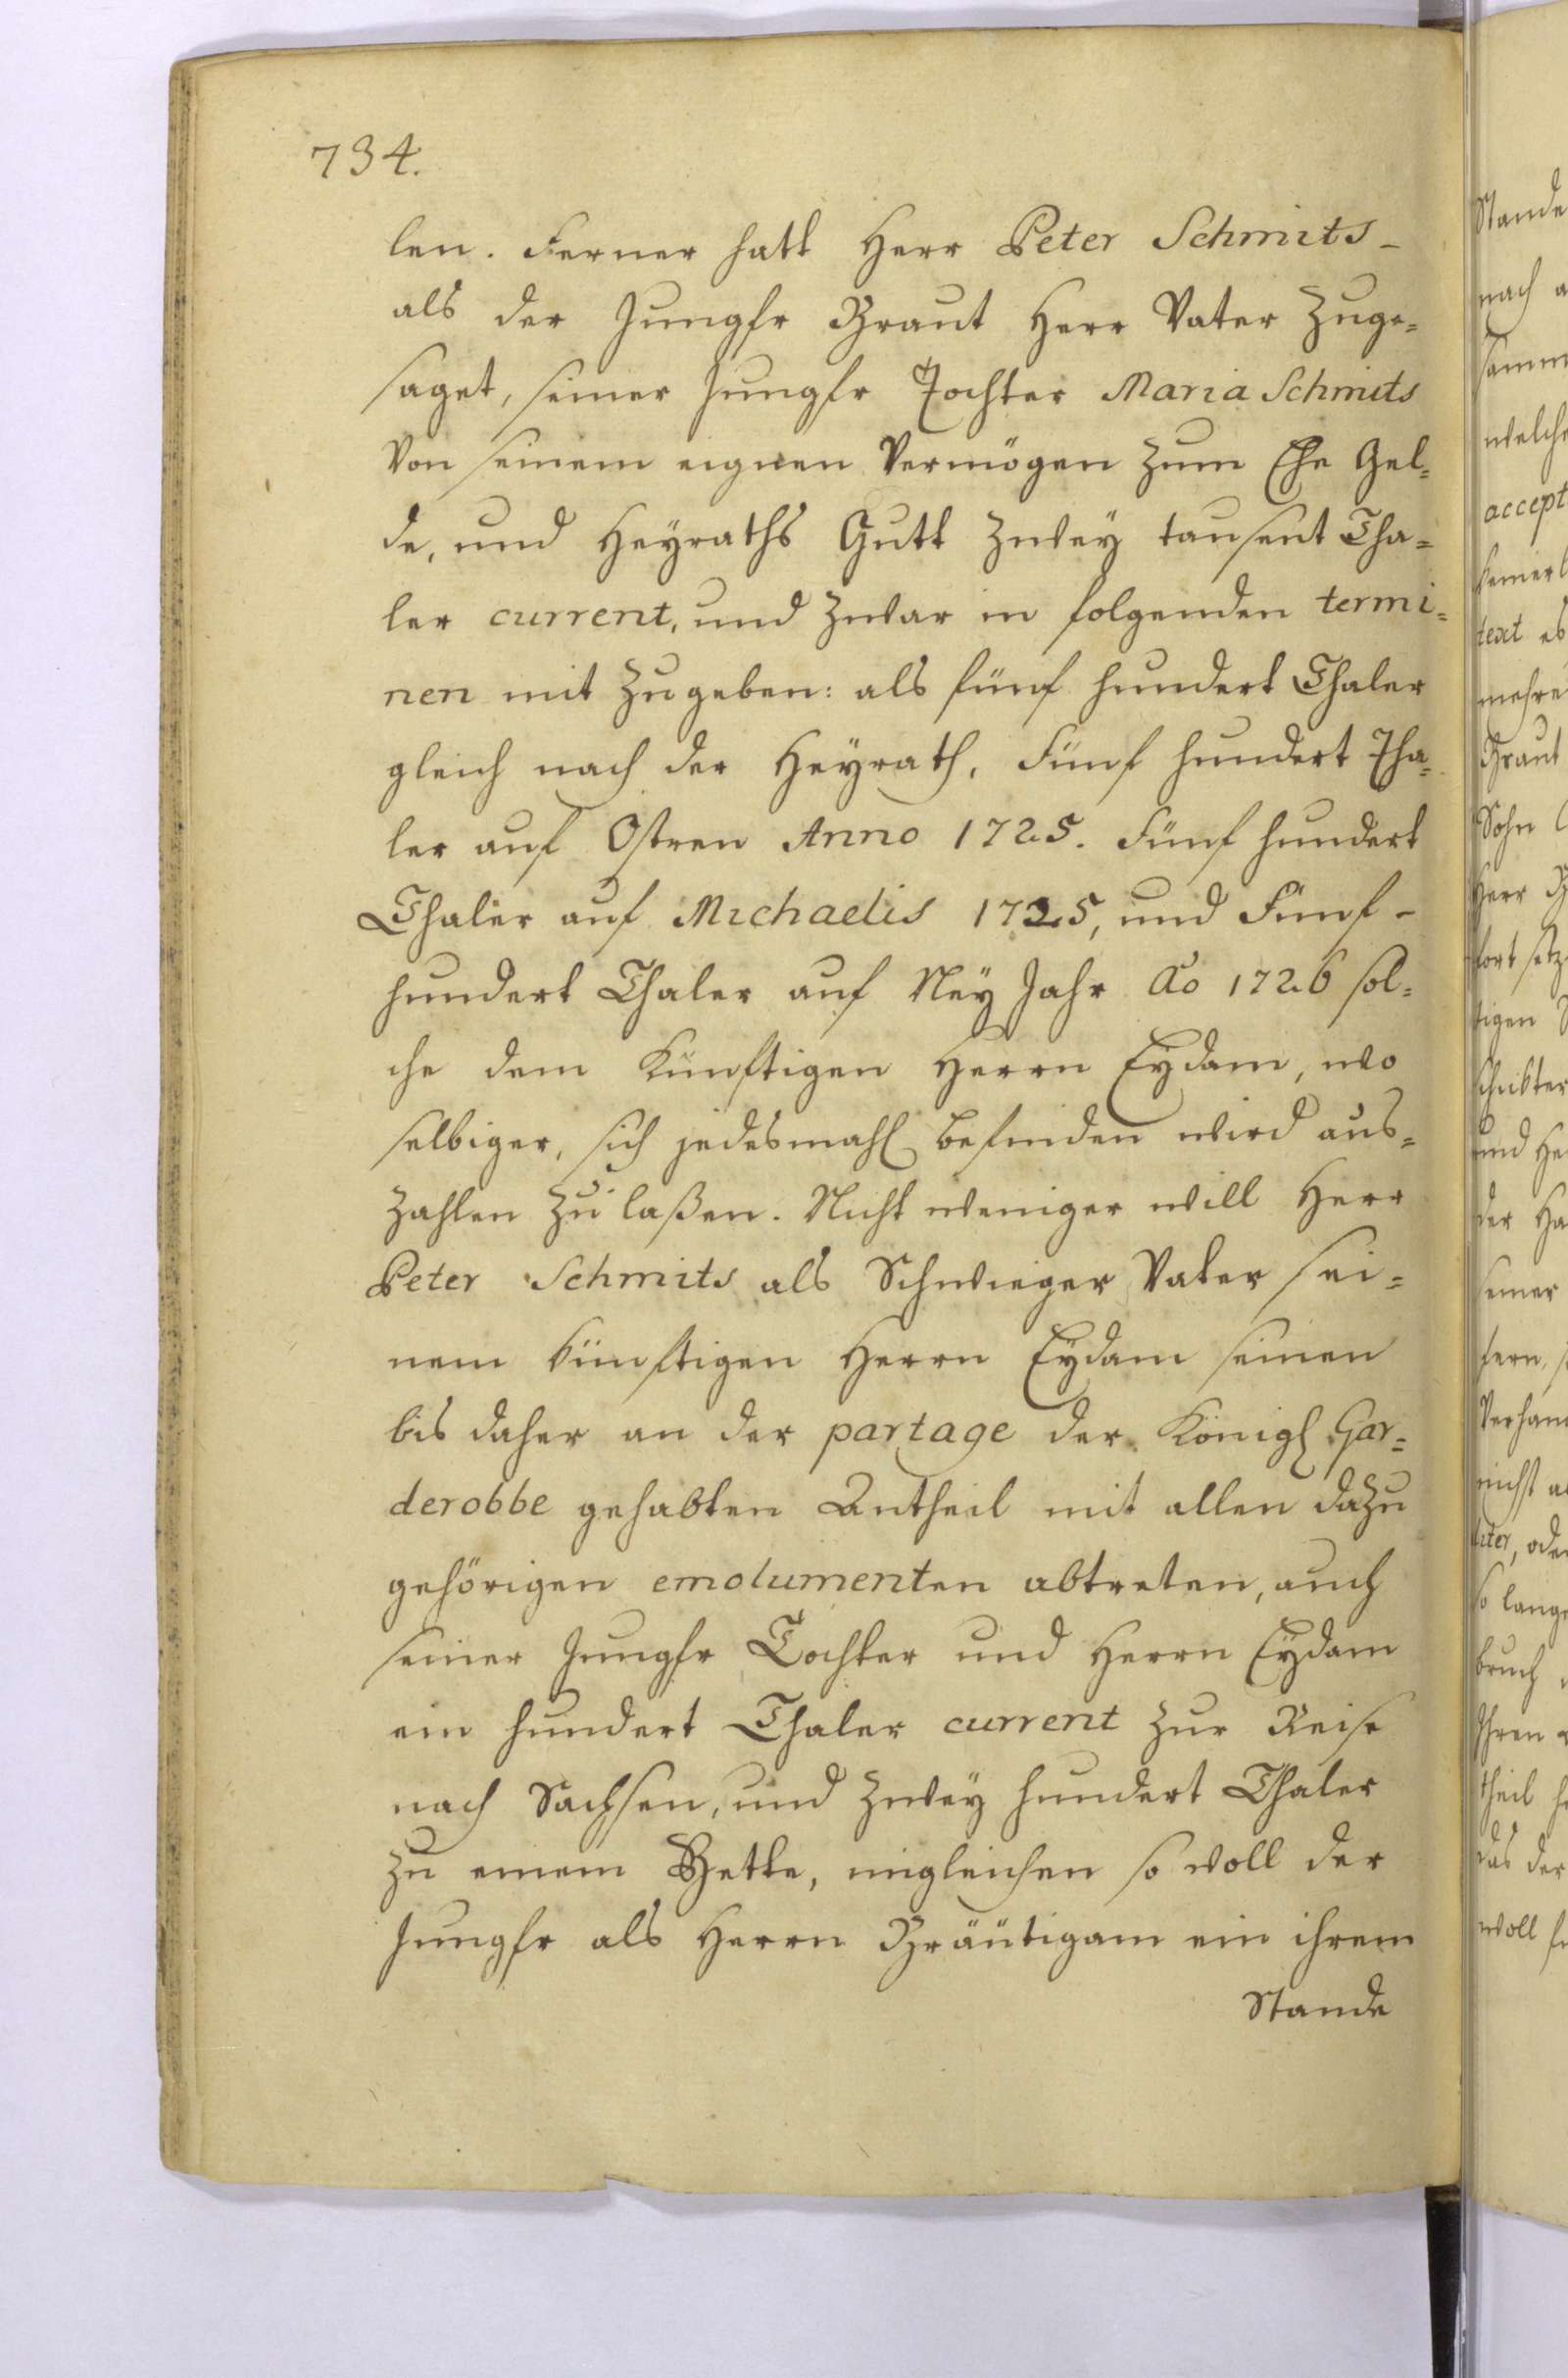 734.
len. Ferner hatt Herr Peter Schmits-
als der Jungfr Braut Herr Vater Zuge=
saget, seiner Jungfr Tochter Maria Schmits
von seinem eignen Vermögen zum Ehe Gel=
de, und Heyraths Gutt zwey tausent Tha=
ler current, und zwar in folgenden termi=
nen mit zugeben: als fünf hundert Thaler
gleich nach der Heyrath, Fünf hundert Tha=
ler auf Ostren Anno 1725. Fünf hundert
Thaler auf Michaelis 1725, und Fünf-
hundert Thaler auf Ney Jahr Ao 1726 sol=
che dem Künftigen Herrn Eydam, wo
selbiger, sich jedesmahl befinden wird aus=
zahlen zu laßen. Nicht weniger will Herr
Peter Schmits als Schwieger Vater sei=
nem künftigen Herrn Eydam seinen
bis daher an der partage der Königl Gar=
derobbe gehabten Antheil mit allen dazu
gehörigen emolumenten abtreten, auch
seiner Jungfr Tochter und Herrn Eydam
ein hundert Thaler current zur Reise
nach Sachsen, und zwey hundert Thaler
zu einem Bette, imgleichen so woll der
Jungfr als Herrn Bräutigam ein ihrem
Stande
Stande
nach
welche
accept
text es
mehre
Braut
Sohn
Herr
fort setz
tigen
und He
der Ha
seiner
fern,
Verhan
nicht a
so lange
bruch
Ihren
theil
das der
woll